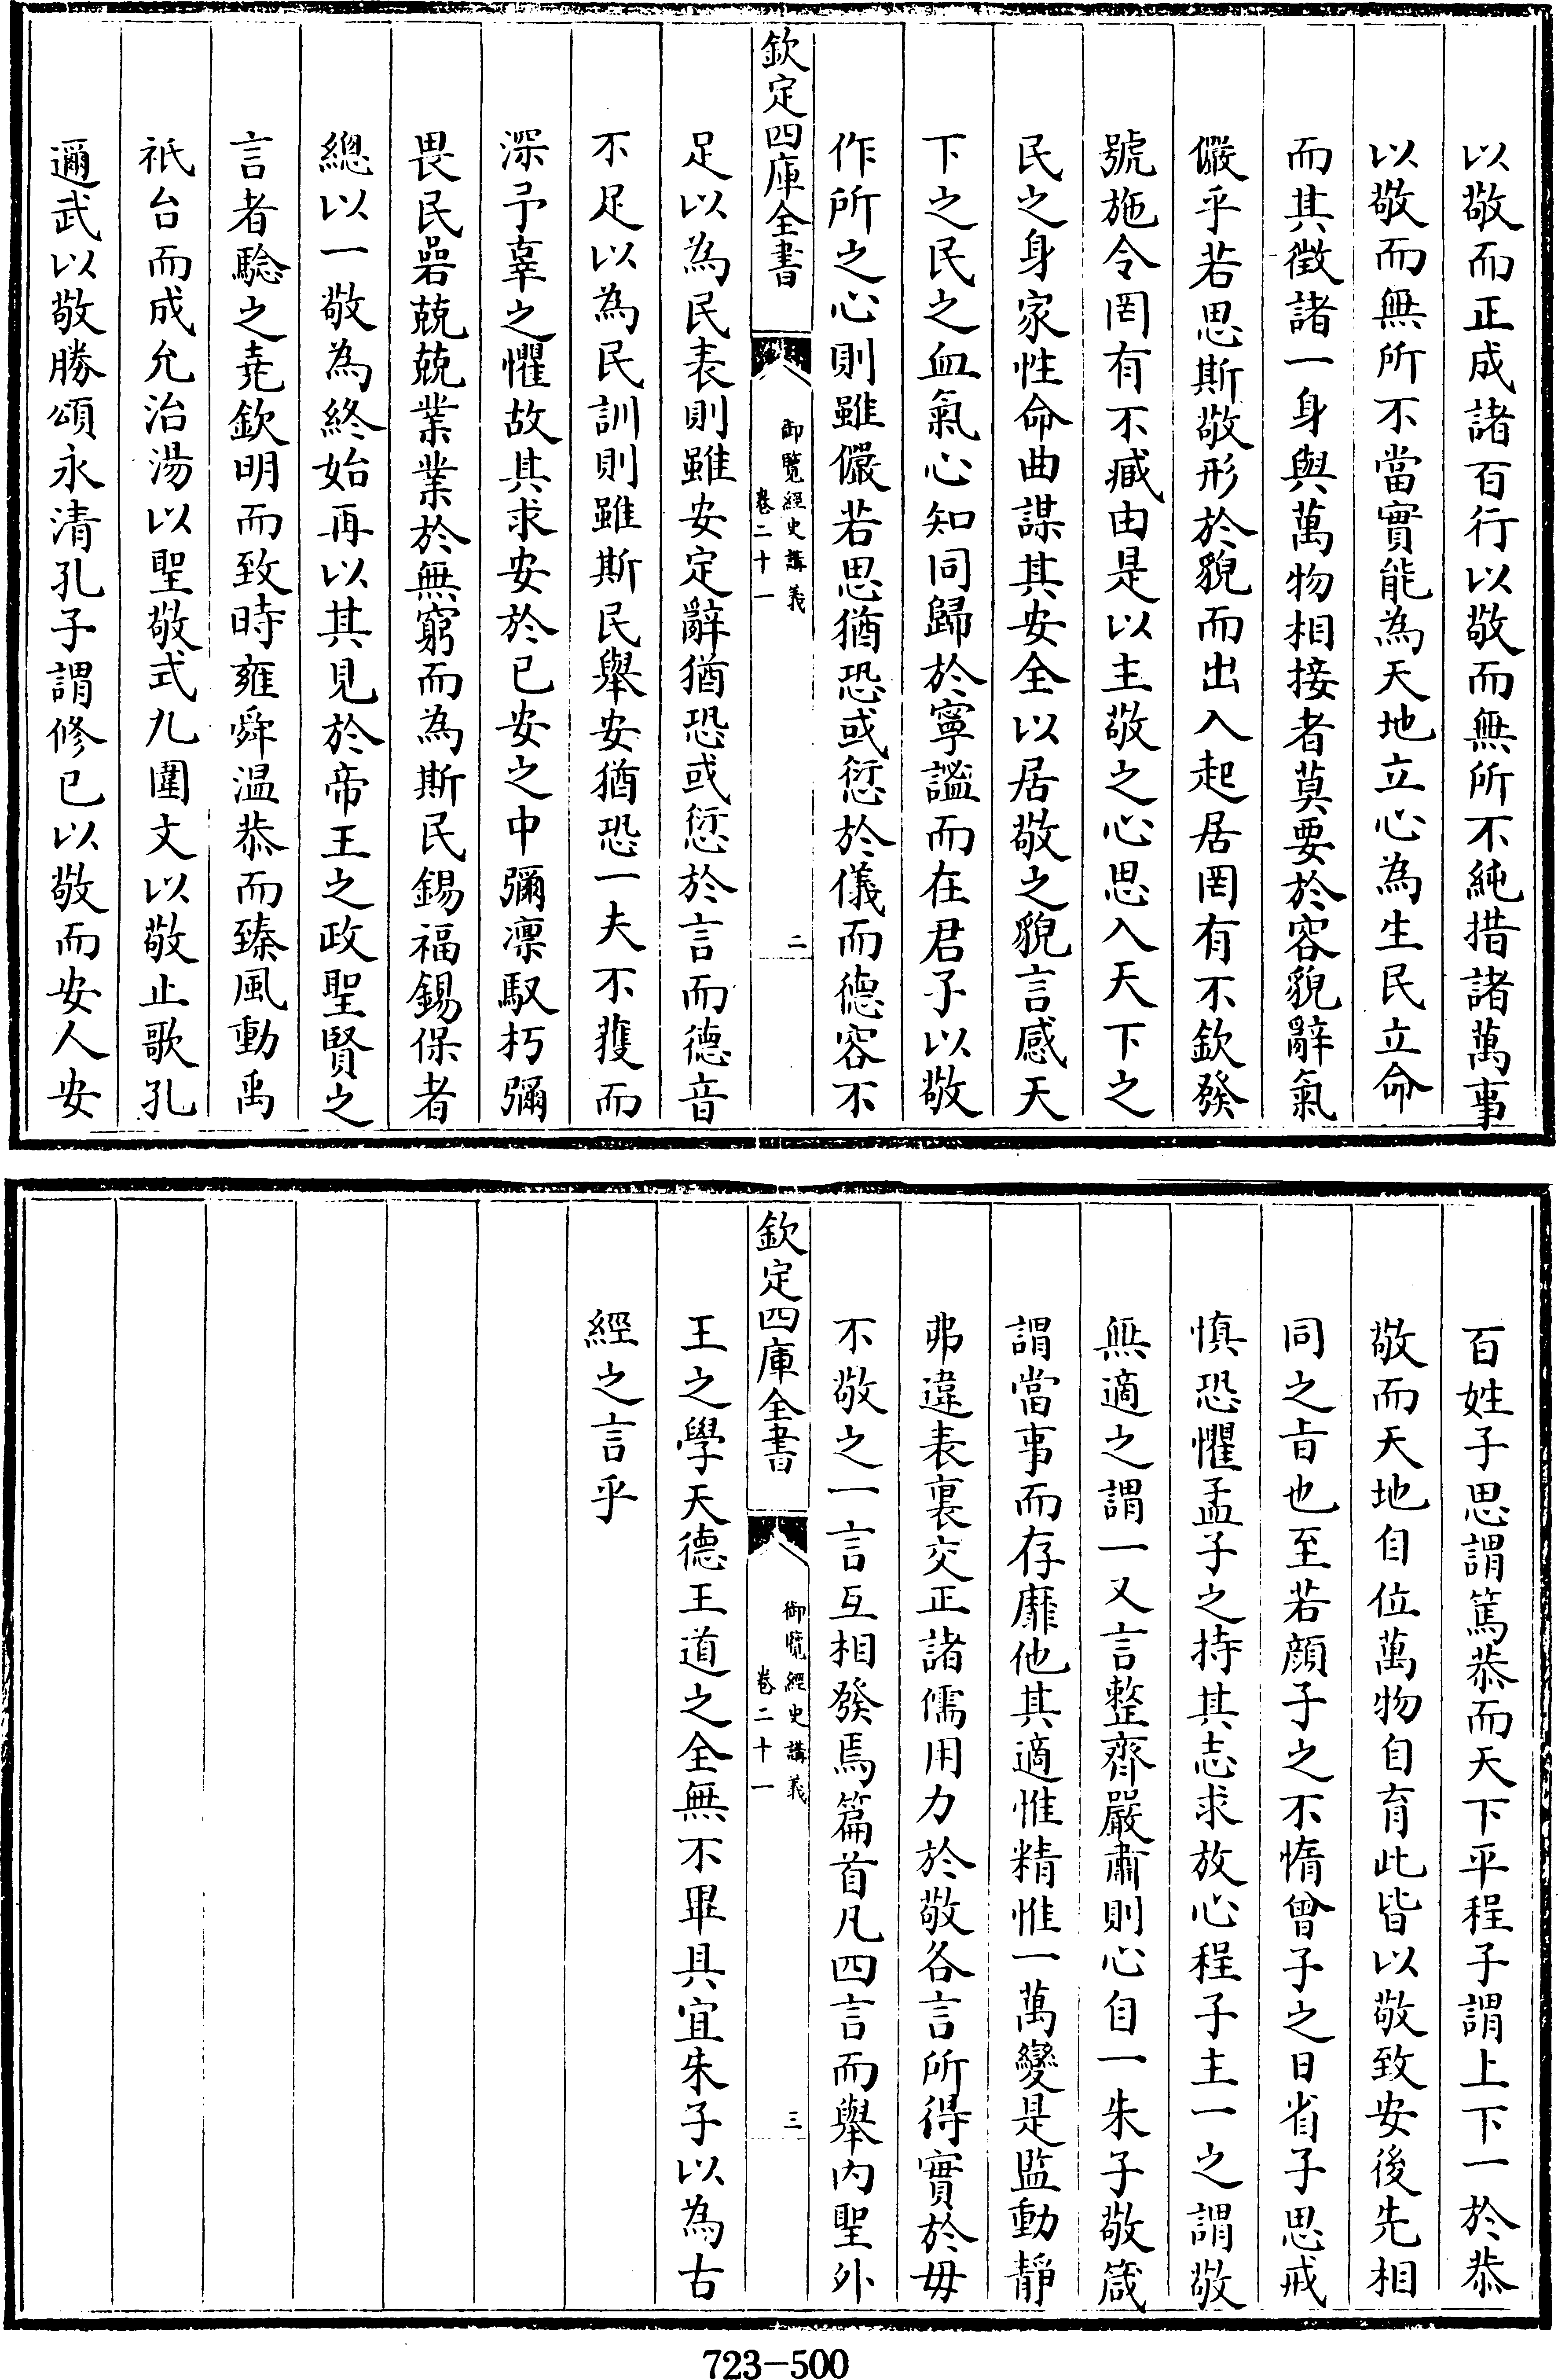 以敬而正成諸百行以敬而無所不純措諸萬事
以敬而無所不當實能為天地立心為生民立命
而其徵諸一身與萬物相接者莫要於容貌辭氣
儼乎若思斯敬形於貌而出入起居罔有不欽發
號施令罔有不臧由是以主敬之心思入天下之
民之身家性命曲謀其安全以居敬之貌言感天
下之民之血氣心知同歸於寧謐而在君子以敬
作所之心則雖儼若思猶恐或愆於儀而德容不
欽定四庫全書
御覽經史講義
卷二十一
二
足以為民表則雖安定辭猶恐或愆於言而德音
不足以為民訓則雖斯民舉安猶恐一夫不獲而
深予辜之懼故其求安於已安之中彌凛馭朽彌
畏民碞兢兢業業於無窮而為斯民錫福錫保者
總以一敬為終始再以其見於帝王之政聖賢之
言者騐之堯欽明而致時雍舜温恭而臻風動禹
祇台而成允治湯以聖敬式九圍文以敬止歌孔
邇武以敬勝頌永清孔子謂修已以敬而安人安
百姓子思謂篤恭而天下平程子謂上下一於恭
敬而天地自位萬物自育此皆以敬致安後先相
同之旨也至若顔子之不惰曾子之日省子思戒
慎恐懼孟子之持其志求放心程子主一之謂敬
無適之謂一又言整齊嚴肅則心自一朱子敬箴
謂當事而存靡他其適惟精惟一萬變是監動靜
弗違表裏交正諸儒用力於敬各言所得實於毋
不敬之一言互相發焉篇首凡四言而舉內聖外
欽定四庫全書
御覽經史講義
卷二十一
三
王之學天德王道之全無不畢具宜朱子以為古
經之言乎
723-500